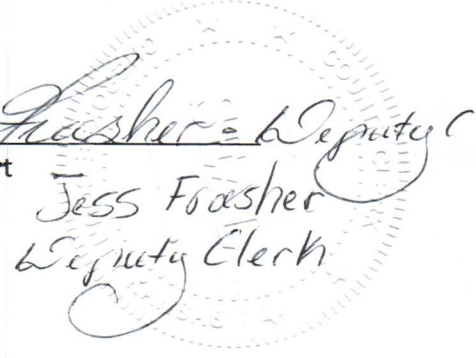 Frasher - Deputy C
t
Jess Frasher
Deputy Clerk